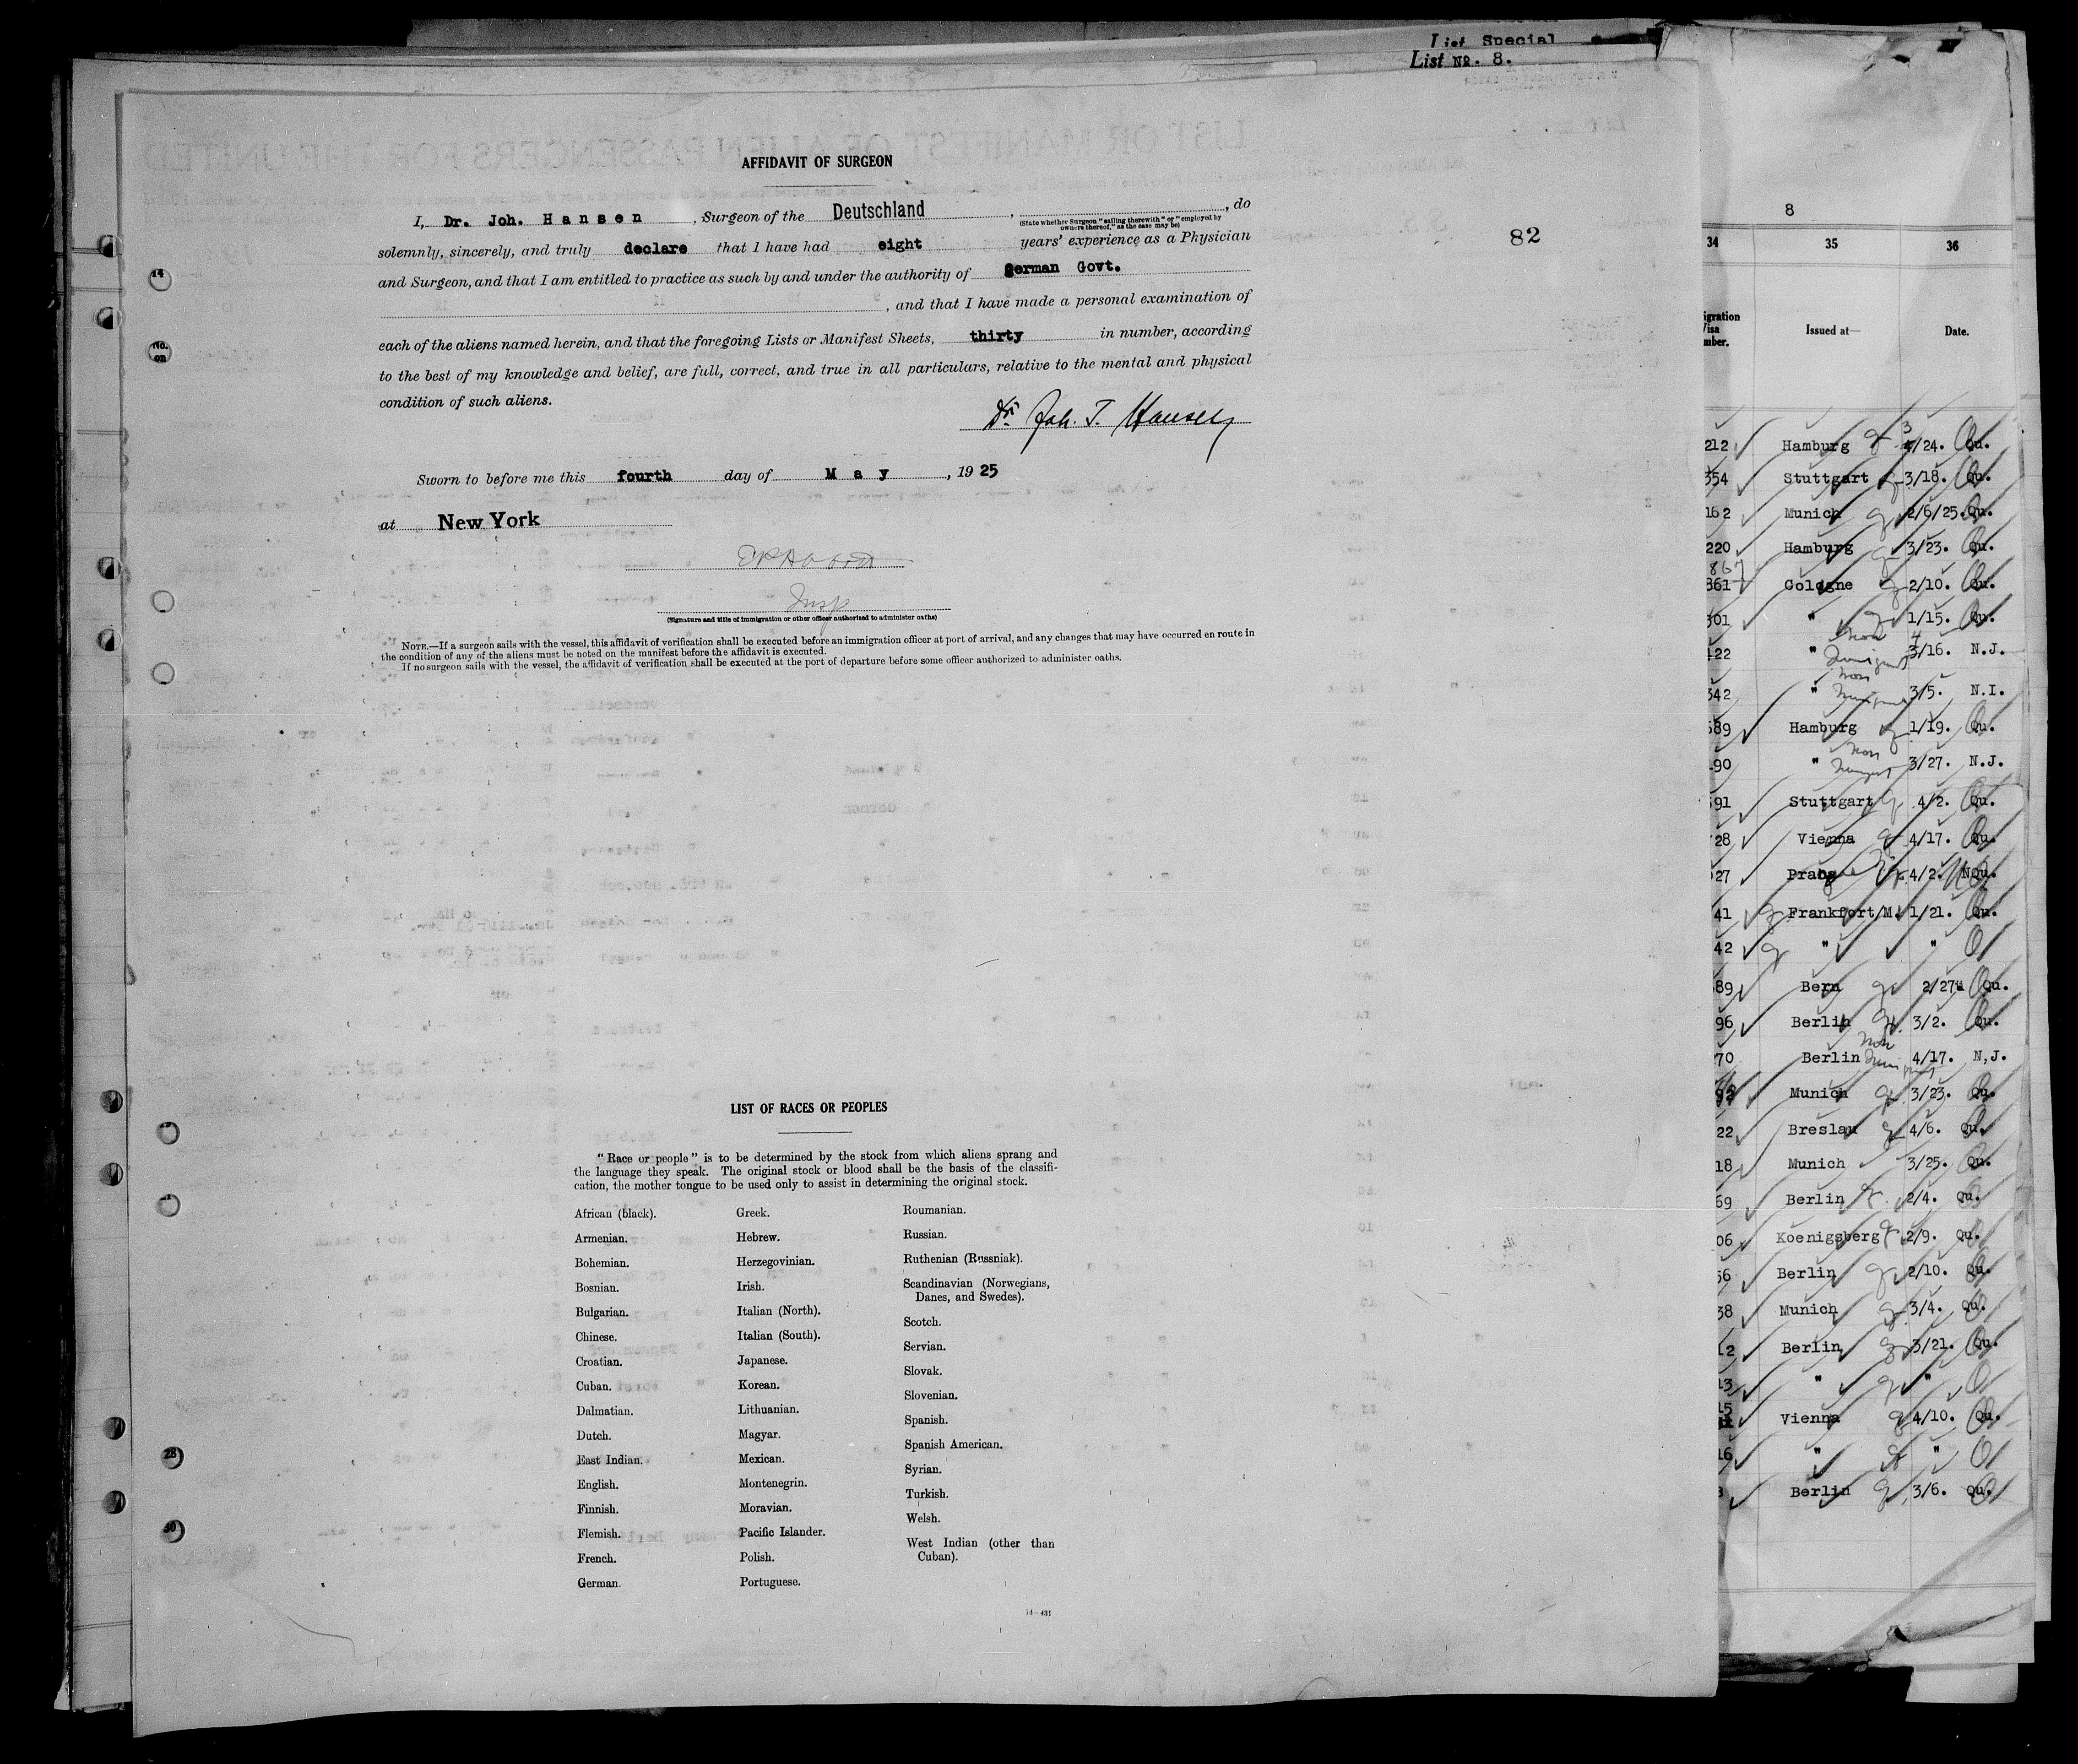 List Special
List No. 8.
AFFIDAVIT OF SURGEON
I, Dr. Joh. Hansen, Surgeon of the Deutschland, , do
(State whether Surgeon "sailing therewith" or "employed by owners thereof," as the case may be)
solemnly, sincerely, and truly declare that I have had eight years' experience as a Physician
and Surgeon, and that I am entitled to practice as such by and under the authority of German Govt.
, and that I have made a personal examination of
each of the aliens named herein, and that the foregoing Lists or Manifest Sheets, thirty in number, according
to the best of my knowledge and belief, are full, correct, and true in all particulars, relative to the mental and physical
condition of such aliens.
Dr. Joh. T. Hansen
Sworn to before me this fourth day of May, 1925
at New York
Insp
(Signature and title of immigration or other officer authorized to administer oaths)
NOTE.—If a surgeon sails with the vessel, this affidavit of verification shall be executed before an immigration officer at port of arrival, and any changes that may have occurred en route in
the condition of any of the aliens must be noted on the manifest before the affidavit is executed.
If no surgeon sails with the vessel, the affidavit of verification shall be executed at the port of departure before some officer authorized to administer oaths.
82
LIST OF RACES OR PEOPLES
"Race or people" is to be determined by the stock from which aliens sprang and
the language they speak. The original stock or blood shall be the basis of the classifi-
cation, the mother tongue to be used only to assist in determining the original stock.
African (black).
Armenian.
Bohemian.
Bosnian.
Bulgarian.
Chinese.
Croatian.
Cuban.
Dalmatian.
Dutch.
East Indian.
English.
Finnish.
Flemish.
French.
German.
Greek.
Hebrew.
Herzegovinian.
Irish.
Italian (North).
Italian (South).
Japanese.
Korean.
Lithuanian.
Magyar.
Mexican.
Montenegrin.
Moravian.
Pacific Islander.
Polish.
Portuguese.
Roumanian.
Russian.
Ruthenian (Russniak).
Scandinavian (Norwegians,
Danes, and Swedes).
Scotch.
Servian.
Slovak.
Slovenian.
Spanish.
Spanish American.
Syrian.
Turkish.
Welsh.
West Indian (other than
Cuban).
14—431
14
No.
on
28
30
8
34 35 36
Issued at— Date.
212 Hamburg 3/24. Qu.
354 Stuttgart 3/18. Qu.
162 Munich 2/6/25. Qu.
220 Hamburg 3/23. Qu.
861 Cologne 2/10. Qu.
301 " 1/15. Qu.
422 " Non Immigrant 3/16. N.J.
342 " Non Immigrant 3/5. N.I.
589 Hamburg 1/19. Qu.
90 " Non Immigrant 3/27. N.J.
91 Stuttgart 4/2. Qu.
28 Vienna 4/17. Qu.
27 Prag 4/2. NQu.
41 Frankfort/M. 1/21. Qu.
42 " "
89 Bern 2/27 Qu.
96 Berlin 3/2. Qu.
70 Berlin Non Immigrant 4/17. N,J.
92 Munich 3/23. Qu.
22 Breslau 4/6. Qu.
18 Munich 3/25. Qu.
69 Berlin 2/4. Qu.
06 Koenigsberg 2/9. Qu.
56 Berlin 2/10. Qu.
38 Munich 3/4. Qu.
12 Berlin 3/21. Qu.
13 " "
15 Vienna 4/10. Qu.
16 " "
Berlin 3/6. Qu.